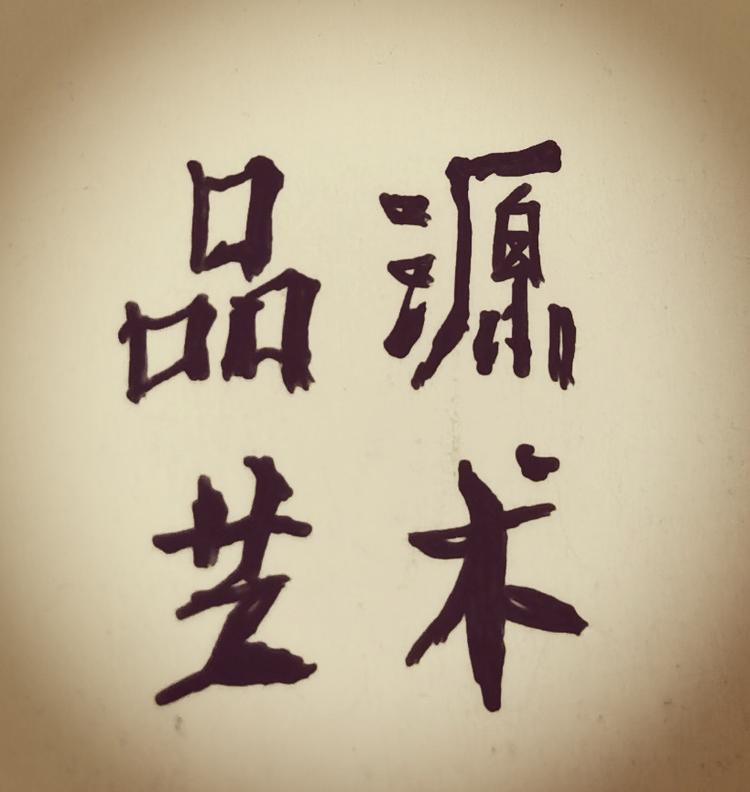 品源
艺术